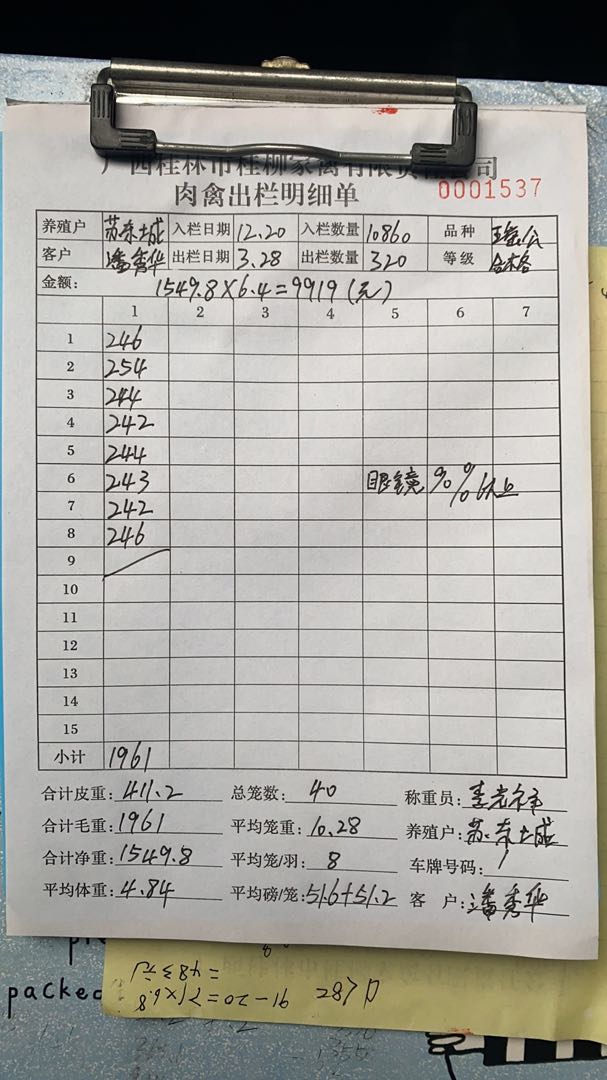 肉禽出栏明细单
0001537
养殖户 苏东城 入栏日期 12.20 入栏数量 10860 品种
客户 潘秀华 出栏日期 3.28 出栏数量 320 等级 合格
金额: 1549.8×6.4=9919(元)
1 2 3 4 5 6 7
1 246
2 254
3 244
4 242
5 244
6 243 眼镜 90%以上
7 242
8 246
9
10
11
12
13
14
15
小计 1961
合计皮重: 411.2 总笼数: 40 称重员:
合计毛重: 1961 平均笼重: 10.28 养殖户: 苏东城
合计净重: 1549.8 平均笼/羽: 8 车牌号码: /
平均体重: 4.84 平均磅/笼: 51.6+51.2 客 户: 潘秀华
packed